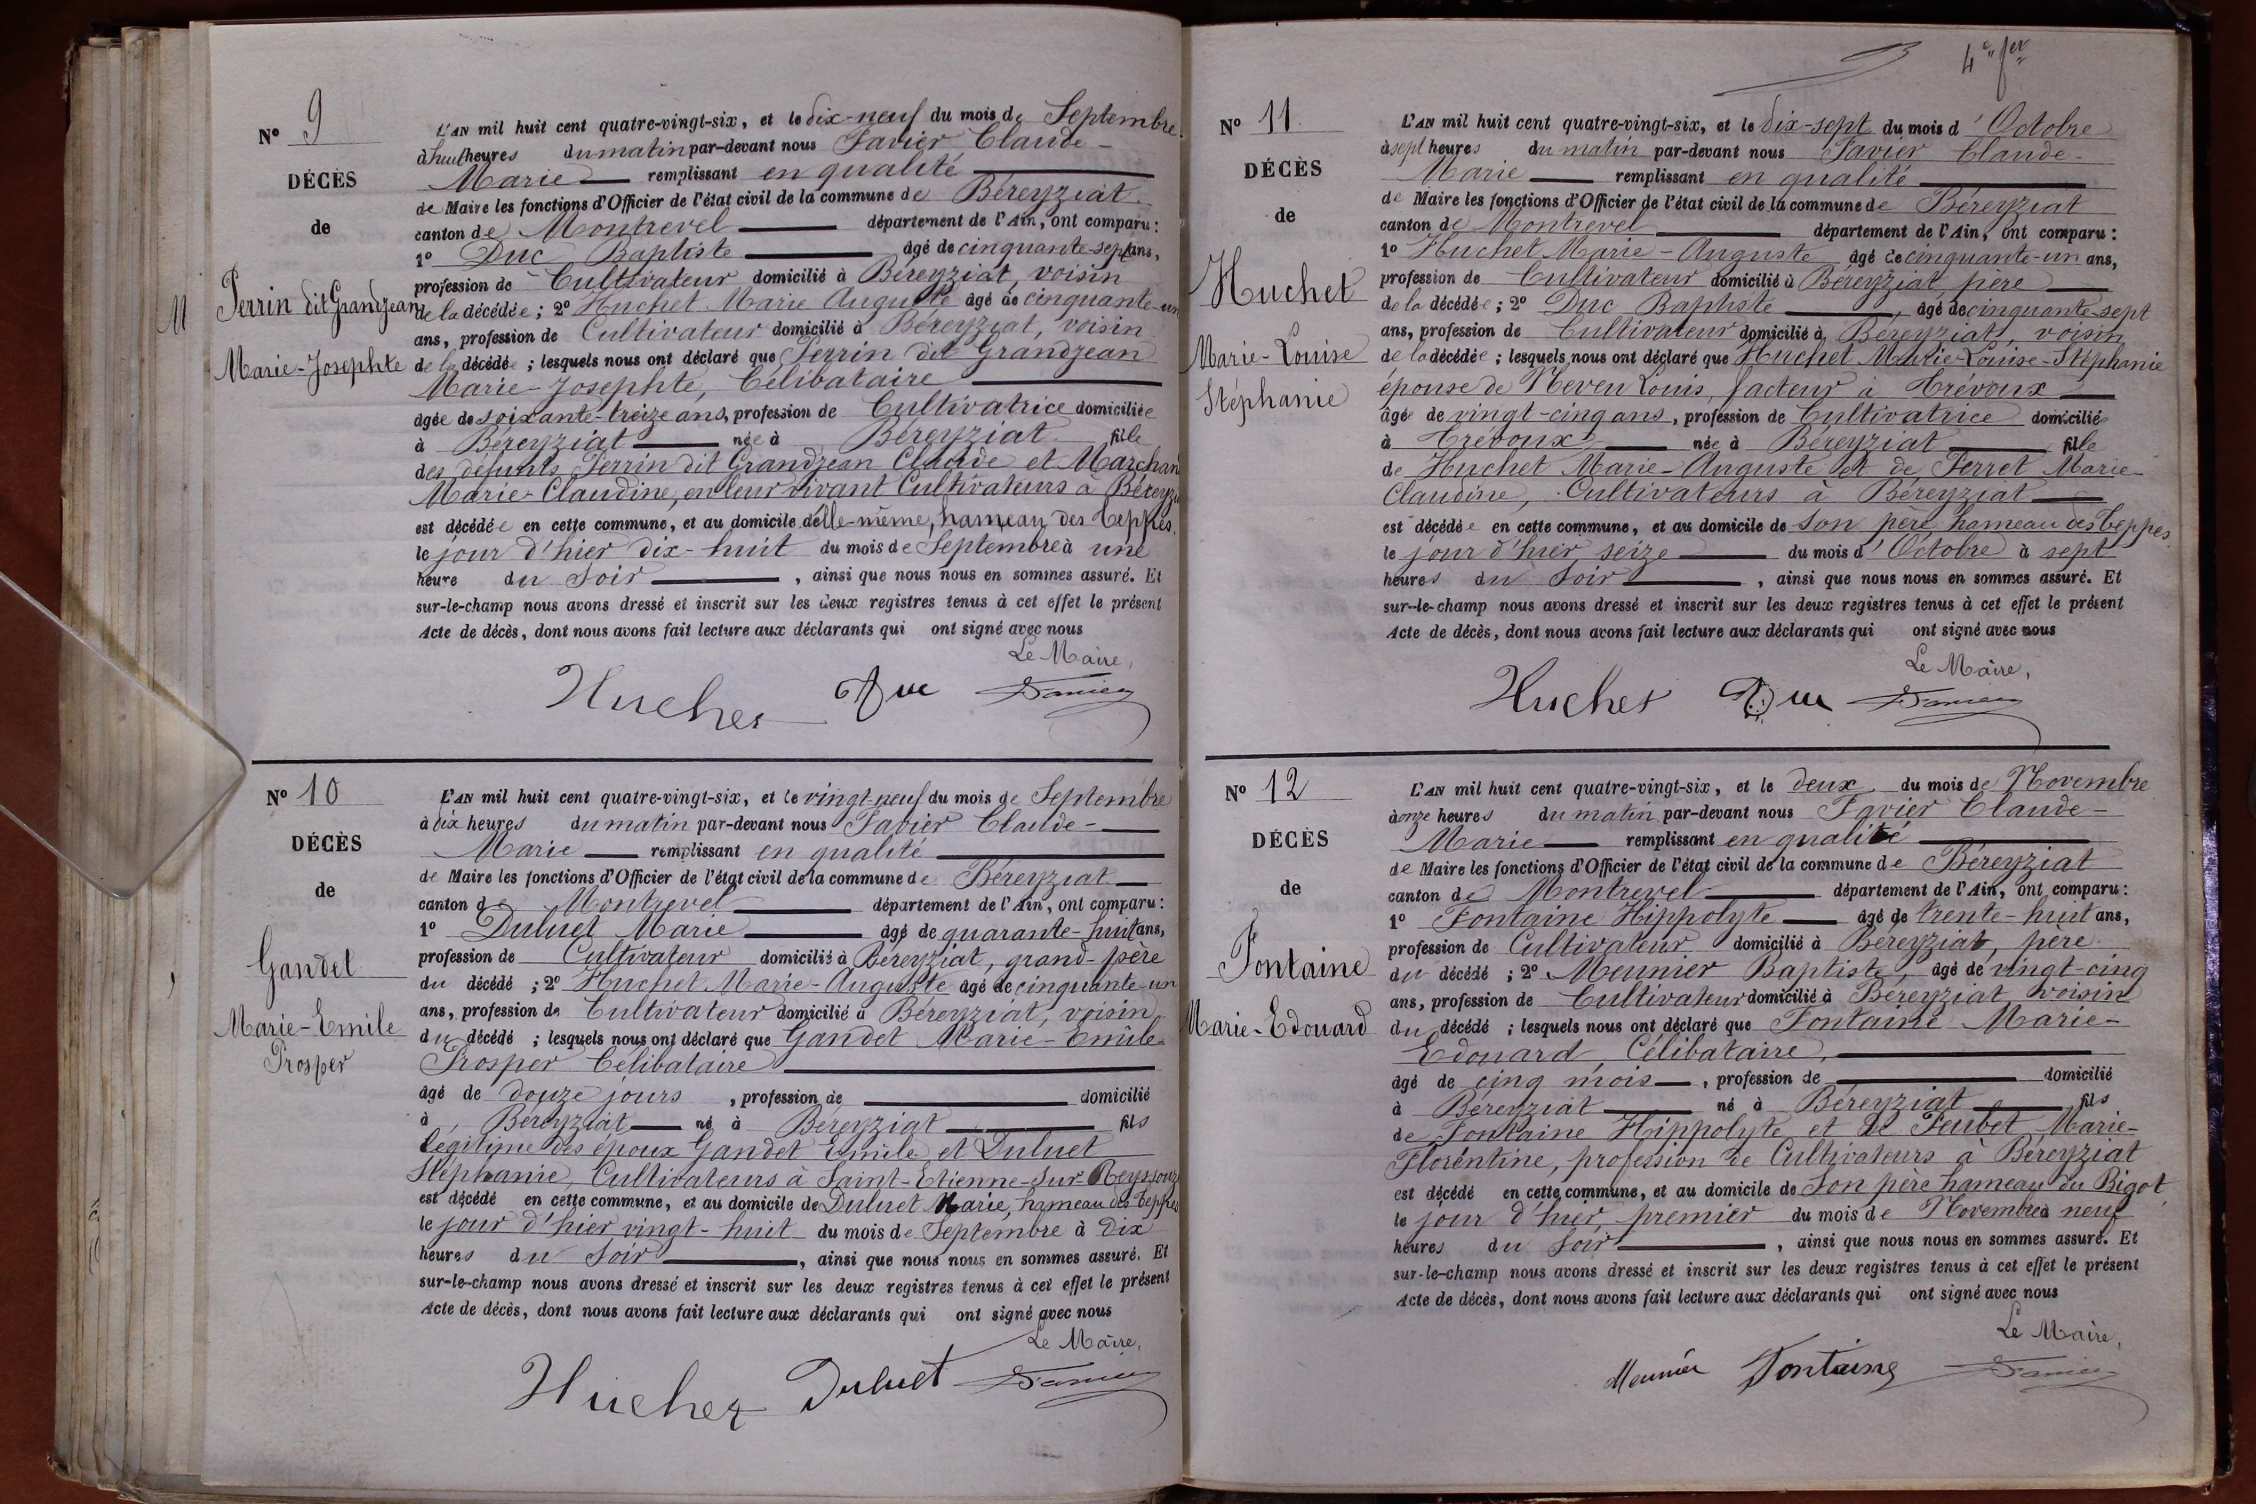 Nº 9
DÉCÈS
de
Perrin dit Grandjean
M
Marie-Josephte
L'AN mil huit cent quatre-vingt-six, et le dix-neuf du mois de Septembre
à huit heures du matin par-devant nous Favier Claude-
Marie remplissant en qualité
de Maire les fonctions d'Officier de l'état civil de la commune de Béreyziat
canton de Montrevel département de l'Ain, ont comparu :
1º Duc Baptiste âgé de cinquante-sept ans,
profession de Cultivateur domicilié à Béreyziat, voisin
de la décédée ; 2º Huchet Marie Auguste âgé de cinquante-un
ans, profession de Cultivateur domicilié à Béreyziat, voisin
de la décédée ; lesquels nous ont déclaré que Perrin dit Grandjean
Marie-Josephte, Célibataire
âgée de soixante-treize ans, profession de Cultivatrice domiciliée
à Béreyziat née à Béreyziat fille
des défunts Perrin dit Grandjean Claude et Marchand
Marie-Claudine, en leur vivant Cultivateurs à Béreyzia
est décédée en cette commune, et au domicile d'elle-même, hameau des Teppes.
le jour d'hier dix-huit du mois de Septembre à une
heure du Soir , ainsi que nous nous en sommes assuré. Et
sur-le-champ nous avons dressé et inscrit sur les deux registres tenus à cet effet le présent
Acte de décès, dont nous avons fait lecture aux déclarants qui ont signé avec nous
Le Maire,
Huchet Duc Favier
Nº 10
DÉCÈS
de
Gandet
Marie-Emile
Prosper
L'AN mil huit cent quatre-vingt-six, et le vingt-neuf du mois de Septembre
à dix heures du matin par-devant nous Favier Claude-
Marie remplissant en qualité
de Maire les fonctions d'Officier de l'état civil de la commune de Béreyziat
canton de Montrevel département de l'Ain, ont comparu :
1º Duluet Marie âgé de quarante-huit ans,
profession de Cultivateur domicilié à Béreyziat, grand-père
du décédé ; 2º Huchet Marie-Auguste âgé de cinquante-un
ans, profession de Cultivateur domicilié à Béreyziat, voisin
du décédé ; lesquels nous ont déclaré que Gandet Marie-Emile-
Prosper Célibataire
âgé de douze jours , profession de domicilié
à Béreyziat né à Béreyziat fils
légitime des époux Gandet Emile et Duluet
Stéphanie, Cultivateurs à Saint-Etienne-sur-Reyssouze
est décédé en cette commune, et au domicile de Duluet Marie, hameau des Teppes
le jour d'hier vingt-huit du mois de Septembre à dix
heures du Soir , ainsi que nous nous en sommes assuré. Et
sur-le-champ nous avons dressé et inscrit sur les deux registres tenus à cet effet le présent
Acte de décès, dont nous avons fait lecture aux déclarants qui ont signé avec nous
Le Maire,
Huchet Duluet Favier
4e fer
Nº 11
DÉCÈS
de
Huchet
Marie-Louise
Stéphanie
L'AN mil huit cent quatre-vingt-six, et le dix-sept du mois d'Octobre
à sept heures du matin par-devant nous Favier Claude-
Marie remplissant en qualité
de Maire les fonctions d'Officier de l'état civil de la commune de Béreyziat
canton de Montrevel département de l'Ain, ont comparu :
1º Huchet Marie-Auguste âgé de cinquante-un ans,
profession de Cultivateur domicilié à Béreyziat, père
de la décédée ; 2º Duc Baptiste , âgé de cinquante-sept
ans, profession de Cultivateur domicilié à Béreyziat, voisin
de la décédée ; lesquels nous ont déclaré que Huchet Marie-Louise-Stéphanie
épouse de Neveu Louis, facteur à Trévoux
âgée de vingt-cinq ans, profession de Cultivatrice domiciliée
à Trévoux née à Béreyziat fille
de Huchet Marie-Auguste et de Ferret Marie-
Claudine, Cultivateurs à Béreyziat
est décédée en cette commune, et au domicile de son père hameau des Teppes.
le jour d'hier seize du mois d'Octobre à sept
heures du Soir , ainsi que nous nous en sommes assuré. Et
sur-le-champ nous avons dressé et inscrit sur les deux registres tenus à cet effet le présent
Acte de décès, dont nous avons fait lecture aux déclarants qui ont signé avec nous
Le Maire,
Huchet Duc Favier
Nº 12
DÉCÈS
de
Fontaine
Marie-Edouard
L'AN mil huit cent quatre-vingt-six, et le deux du mois de Novembre
à onze heures du matin par-devant nous Favier Claude-
Marie remplissant en qualité
de Maire les fonctions d'Officier de l'état civil de la commune de Béreyziat
canton de Montrevel département de l'Ain, ont comparu :
1º Fontaine Hippolyte âgé de trente-huit ans,
profession de Cultivateur domicilié à Béreyziat, père
du décédé ; 2º Meunier Baptiste, âgé de vingt-cinq
ans, profession de Cultivateur domicilié à Béreyziat, voisin
du décédé ; lesquels nous ont déclaré que Fontaine Marie-
Edouard, Célibataire,
âgé de cinq mois , profession de domicilié
à Béreyziat né à Béreyziat fils
de Fontaine Hippolyte et de Feubet Marie-
Florentine, profession de Cultivateurs à Béreyziat
est décédé en cette commune, et au domicile de Son père hameau du Bigot
le jour d'hier, premier du mois de Novembre à neuf
heures du Soir , ainsi que nous nous en sommes assuré. Et
sur-le-champ nous avons dressé et inscrit sur les deux registres tenus à cet effet le présent
Acte de décès, dont nous avons fait lecture aux déclarants qui ont signé avec nous
Le Maire,
Meunier Fontaine Favier